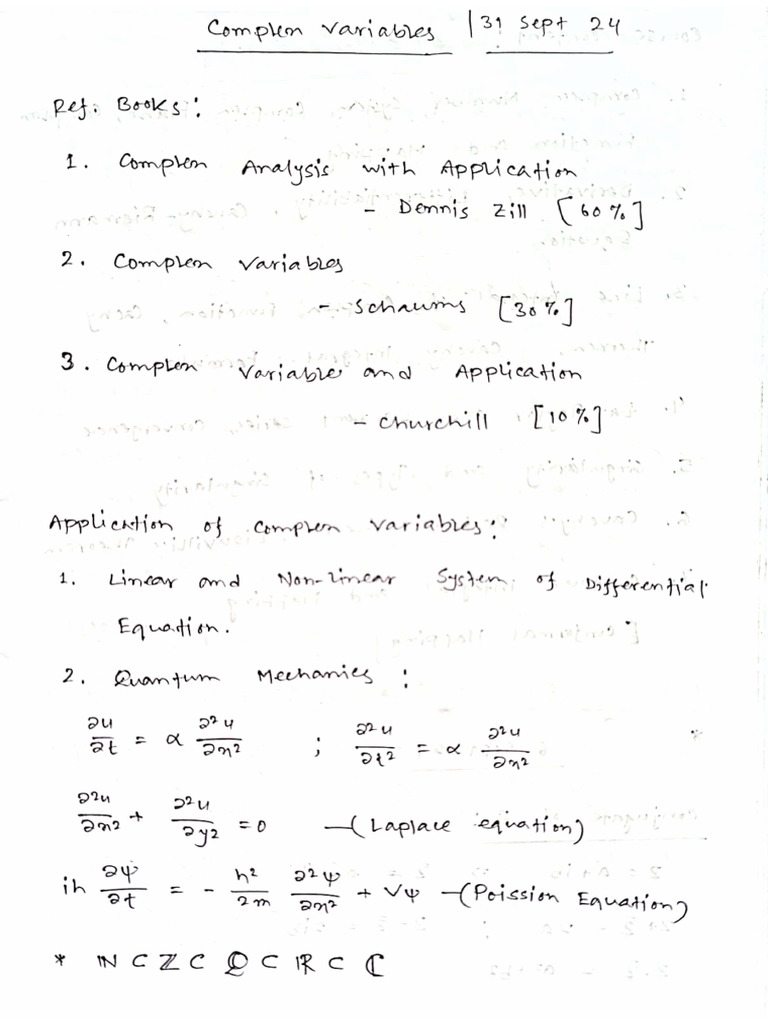 Complex Variables | 31 Sept 24
Ref. Books:
1. Complex Analysis with Application
- Dennis Zill [60%]
2. Complex Variables
- Schaums [30%]
3. Complex Variable and Application
- Churchill [10%]
Application of Complex Variables:
1. Linear and Non-linear System of Differential
Equation.
2. Quantum Mechanics :
∂u/∂t = α ∂²u/∂x² ; ∂²u/∂t² = α ∂²u/∂x²
∂²u/∂x² + ∂²u/∂y² = 0 —(Laplace equation)
iħ ∂ψ/∂t = - ħ²/2m ∂²ψ/∂x² + Vψ —(Poission Equation)
* ℕ ⊂ ℤ ⊂ ℚ ⊂ ℝ ⊂ ℂ